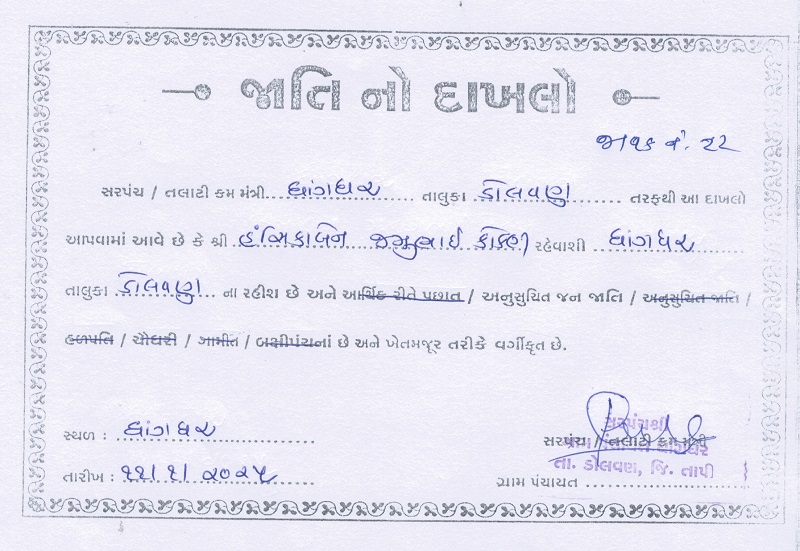 જાતિ નો દાખલો
જાવક નં. ૨૨
સરપંચ / તલાટી કમ મંત્રી ધાંગધર તાલુકા ડોલવણ તરફથી આ દાખલો
આપવામાં આવે છે કે શ્રી હંસિકાબેન જગુભાઈ કોંકણી રહેવાશી ધાંગધર
તાલુકા ડોલવણ ના રહીશ છે અને આર્થિક રીતે પછાત / અનુસુચિત જન જાતિ / અનુસુચિત જાતિ /
હળપતિ / ચૌધરી / ગામીત / બક્ષીપંચનાં છે અને ખેતમજૂર તરીકે વર્ગીકૃત છે.
સ્થળ : ધાંગધર
તારીખ : ૧૧/૧/૨૦૨૫
સરપંચશ્રી
સરપંચ / તલાટી કમ મંત્રી
તા. ડોલવણ, જિ. તાપી
ગ્રામ પંચાયત